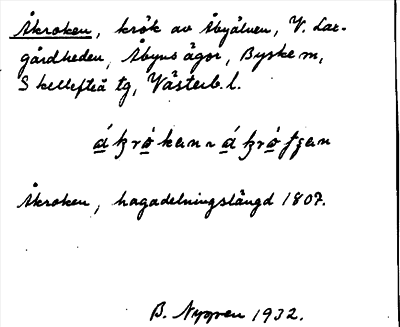 Åkroken, krök av Åbyälven, V. Lar-
gårdheden, Åbyns ägor, Byske m,
Skellefteå tg, Västerb. l.
Åkroken, hagadelningslängd 1807.
B. Nygren 1932.